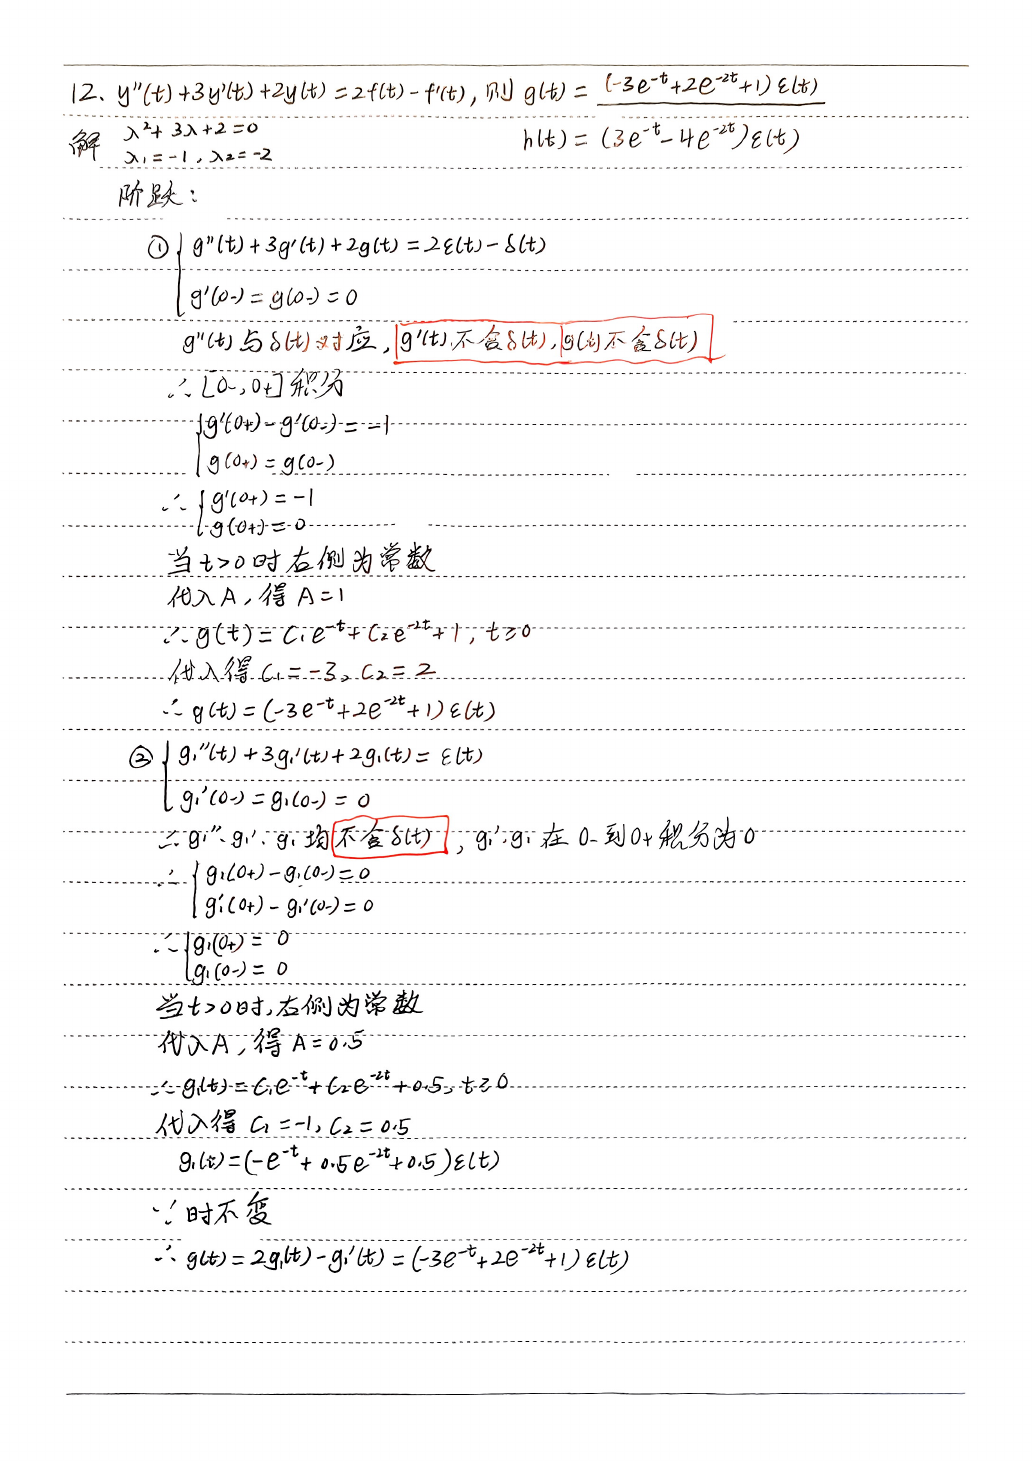 12、y''(t)+3y'(t)+2y(t)=2f(t)-f'(t), 则 g(t)= (-3e^{-t}+2e^{-2t}+1)ε(t)
解 λ²+3λ+2=0
h(t)=(3e^{-t}-4e^{-2t})ε(t)
λ₁=-1, λ₂=-2
阶跃:
① { g''(t)+3g'(t)+2g(t)=2ε(t)-δ(t)
g'(0-)=g(0-)=0
g''(t)与δ(t)对应, g'(t)不含δ(t), g(t)不含δ(t)
∴[0-,0+]积分
{ g'(0+)-g'(0-)=-1
g(0+)=g(0-)
∴ { g'(0+)=-1
g(0+)=0
当t>0时右侧为常数
代入A, 得A=1
∴g(t)=C₁e^{-t}+C₂e^{-2t}+1, t≥0
代入得C₁=-3, C₂=2
∴g(t)=(-3e^{-t}+2e^{-2t}+1)ε(t)
② { g₁''(t)+3g₁'(t)+2g₁(t)=ε(t)
g₁'(0-)=g₁(0-)=0
∴g₁''、g₁'、g₁均不含δ(t), g₁'、g₁在0-到0+积分为0
∴ { g₁(0+)-g₁(0-)=0
g₁'(0+)-g₁'(0-)=0
∴ { g₁(0+)=0
g₁(0-)=0
当t>0时,右侧为常数
代入A, 得A=0.5
∴g₁(t)=C₁e^{-t}+C₂e^{-2t}+0.5, t≥0
代入得C₁=-1, C₂=0.5
g₁(t)=(-e^{-t}+0.5e^{-2t}+0.5)ε(t)
∵时不变
∴g(t)=2g₁(t)-g₁'(t)=(-3e^{-t}+2e^{-2t}+1)ε(t)